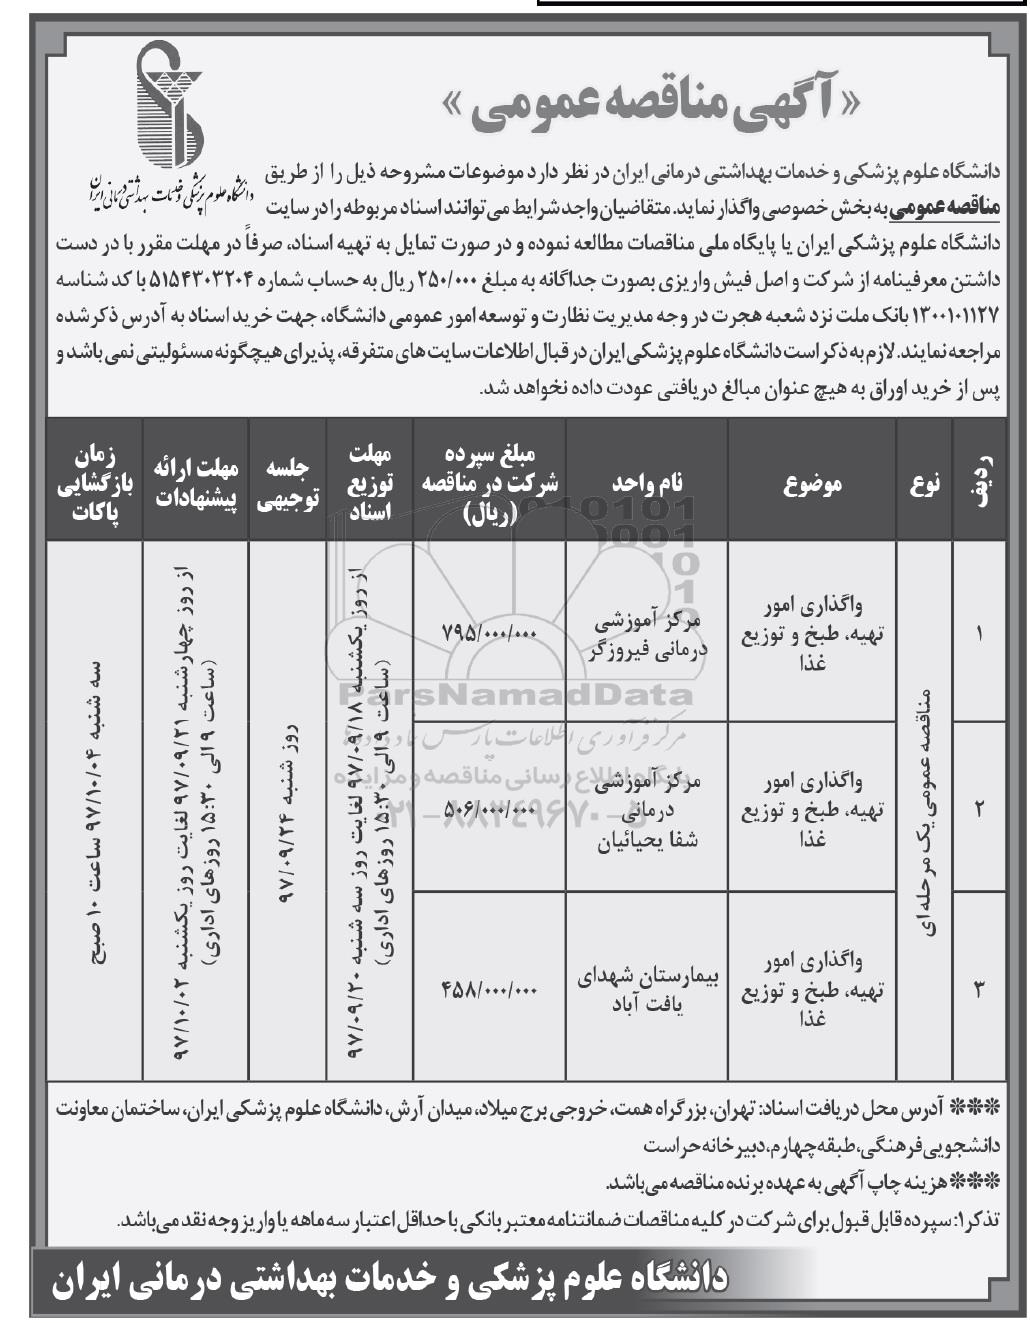 «آگهی مناقصه عمومی»
دانشگاه علوم پزشکی و خدمات بهداشتی درمانی ایران
دانشگاه علوم پزشکی و خدمات بهداشتی درمانی ایران در نظر دارد موضوعات مشروحه ذیل را از طریق
مناقصه عمومی به بخش خصوصی واگذار نماید. متقاضیان واجد شرایط می‌توانند اسناد مربوطه را در سایت
دانشگاه علوم پزشکی ایران یا پایگاه ملی مناقصات مطالعه نموده و در صورت تمایل به تهیه اسناد، صرفاً در مهلت مقرر با در دست
داشتن معرفینامه از شرکت و اصل فیش واریزی بصورت جداگانه به مبلغ ۲۵۰/۰۰۰ ریال به حساب شماره ۵۱۵۴۳۰۳۲۰۴ با کد شناسه
۱۳۰۰۱۰۱۱۲۷ بانک ملت نزد شعبه هجرت در وجه مدیریت نظارت و توسعه امور عمومی دانشگاه، جهت خرید اسناد به آدرس ذکر شده
مراجعه نمایند. لازم به ذکر است دانشگاه علوم پزشکی ایران در قبال اطلاعات سایت های متفرقه، پذیرای هیچگونه مسئولیتی نمی باشد و
پس از خرید اوراق به هیچ عنوان مبالغ دریافتی عودت داده نخواهد شد.
ردیف
نوع
موضوع
نام واحد
مبلغ سپرده
شرکت در مناقصه
(ریال)
مهلت
توزیع
اسناد
جلسه
توجیهی
مهلت ارائه
پیشنهادات
زمان
بازگشایی
پاکات
۱
مناقصه عمومی یک مرحله ای
واگذاری امور
تهیه، طبخ و توزیع
غذا
مرکز آموزشی
درمانی فیروزگر
۷۹۵/۰۰۰/۰۰۰
از روز یکشنبه ۹۷/۰۹/۱۸ لغایت روز سه شنبه ۹۷/۰۹/۲۰
(ساعت ۹ الی ۱۵:۳۰ روزهای اداری)
روز شنبه ۹۷/۰۹/۲۴
از روز چهارشنبه ۹۷/۰۹/۲۱ لغایت روز یکشنبه ۹۷/۱۰/۰۲
(ساعت ۹ الی ۱۵:۳۰ روزهای اداری)
سه شنبه ۹۷/۱۰/۰۴ ساعت ۱۰ صبح
۲
واگذاری امور
تهیه، طبخ و توزیع
غذا
مرکز آموزشی
درمانی
شفا یحیائیان
۵۰۶/۰۰۰/۰۰۰
۳
واگذاری امور
تهیه، طبخ و توزیع
غذا
بیمارستان شهدای
یافت آباد
۴۵۸/۰۰۰/۰۰۰
ParsNamadData
مرکز فرآوری اطلاعات پارس نماد داده ها
پایگاه اطلاع رسانی مناقصه و مزایده
۰۲۱-۸۸۳۴۹۶۷۰-۵
*** آدرس محل دریافت اسناد: تهران، بزرگراه همت، خروجی برج میلاد، میدان آرش، دانشگاه علوم پزشکی ایران، ساختمان معاونت
دانشجویی فرهنگی، طبقه چهارم، دبیرخانه حراست
*** هزینه چاپ آگهی به عهده برنده مناقصه می‌باشد.
تذکر۱: سپرده قابل قبول برای شرکت در کلیه مناقصات ضمانتنامه معتبر بانکی با حداقل اعتبار سه ماهه یا واریز وجه نقد می‌باشد.
دانشگاه علوم پزشکی و خدمات بهداشتی درمانی ایران